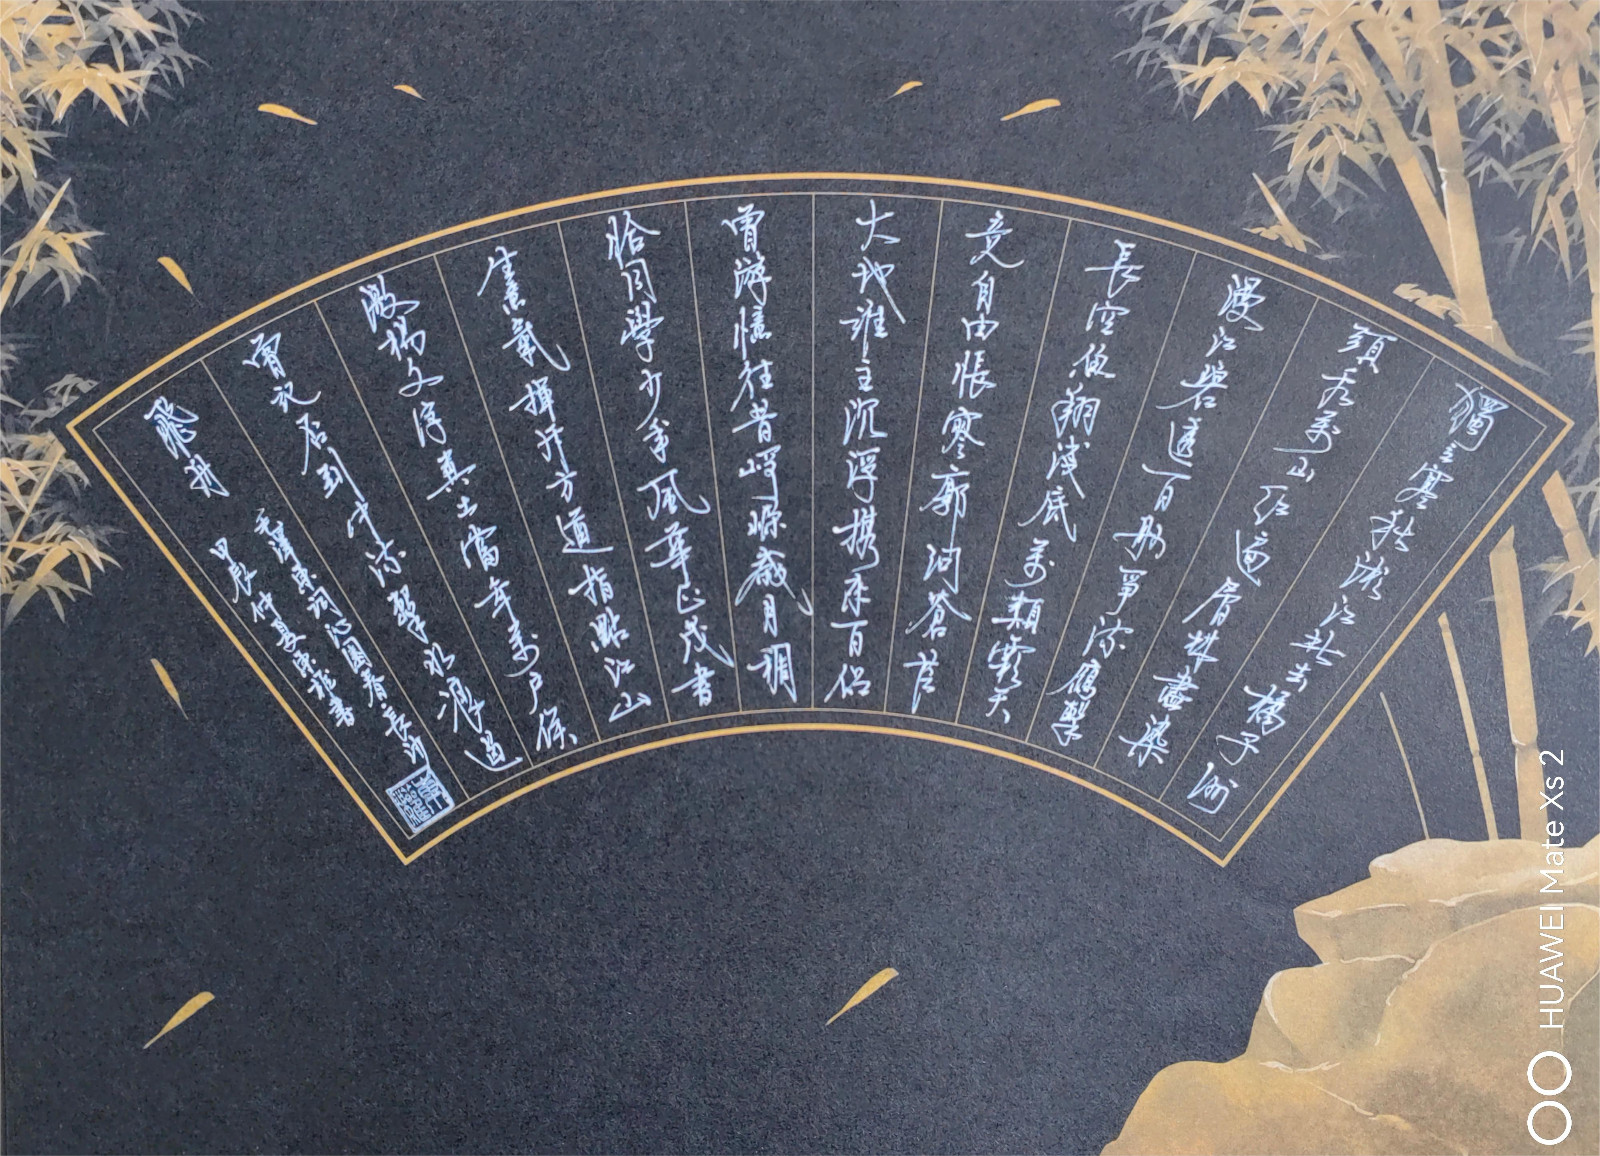 獨立寒秋湘江北去橘子洲
頭看萬山红遍層林盡染
漫江碧透百舸爭流鷹擊
長空魚翔淺底萬類霜天
竞自由悵寥廓問蒼茫
大地誰主沉浮攜來百侣
曾游憶往昔崢嶸歲月稠
恰同學少年風華正茂書
生意氣揮斥方遒指點江山
激揚文字糞土當年萬户侯
曾記否到中流擊水浪遏
飛舟
毛澤東詞沁園春長沙
甲辰仲夏東龍書
HUAWEI Mate Xs 2